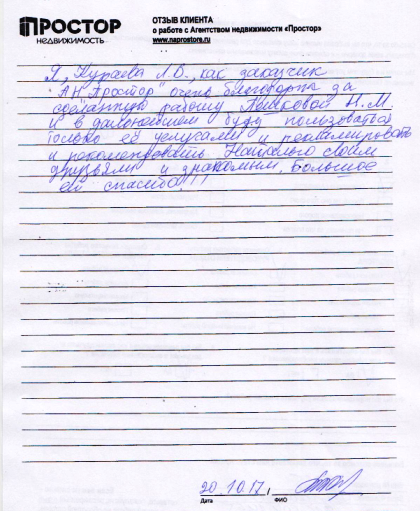 ПРОСТОР
НЕДВИЖИМОСТЬ
ОТЗЫВ КЛИЕНТА
о работе с Агентством недвижимости «Простор»
www.naprostore.ru
Я, Кураева Л.О., как заказчик
"АН Простор" очень благодарна за
сделанную работу Пешковой Н.М.
и в дальнейшем буду пользоваться
только её услугами и рекламировать
и рекомендовать Наталью своим
друзьям и знакомым. Большое
ей спасибо!!!
20.10.17 /
Дата ФИО